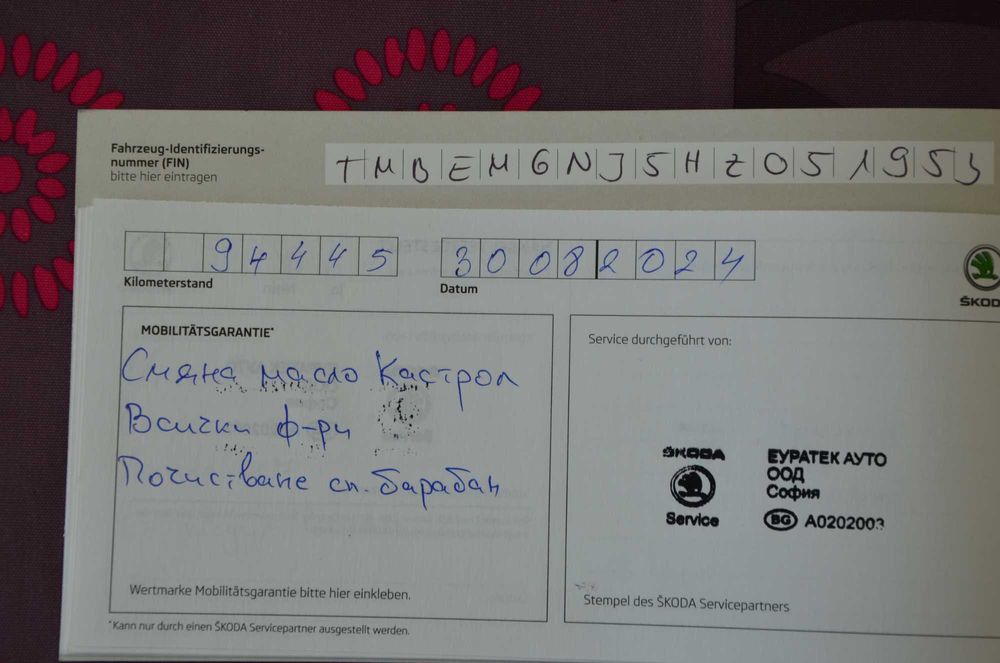 Fahrzeug-Identifizierungs-
nummer (FIN)
bitte hier eintragen
TMBEMGNJ5HZ051953
94445
Kilometerstand
30082024
Datum
ŠKODA
MOBILITÄTSGARANTIE*
Смяна масло Кастрол
Всички ф-ри
Почистване сп. барабан
Wertmarke Mobilitätsgarantie bitte hier einkleben.
*Kann nur durch einen ŠKODA Servicepartner ausgestellt werden.
Service durchgeführt von:
ŠKODA
Service
ЕУРАТЕК АУТО
ООД
София
BG A0202003
Stempel des ŠKODA Servicepartners